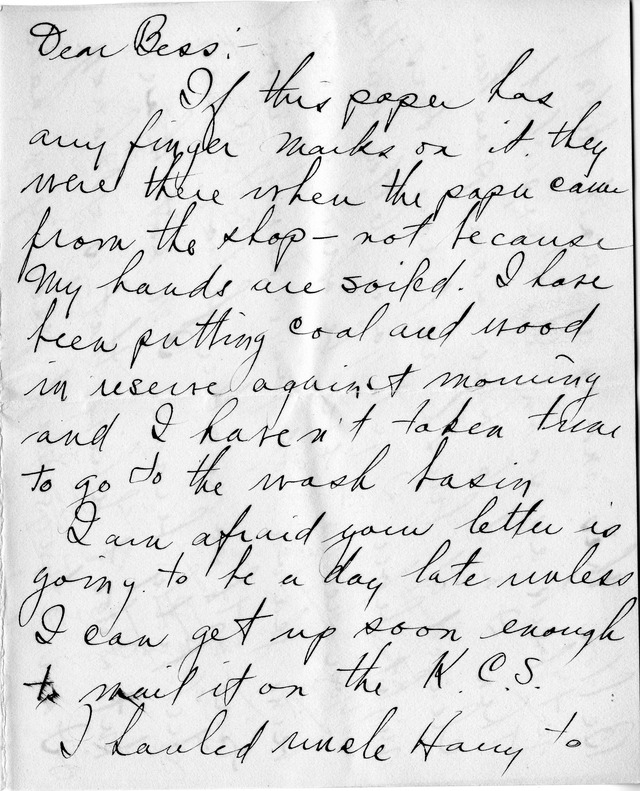 Dear Bess:-
If this paper has
any finger marks on it they
were there when the paper came
from the shop - not because
my hands are soiled. I have
been putting coal and wood
in reserve against morning
and I haven't taken time
to go to the wash basin
I am afraid your letter is
going to be a day late unless
I can get up soon enough
to mail it on the K.C.S.
I hauled uncle Harry to